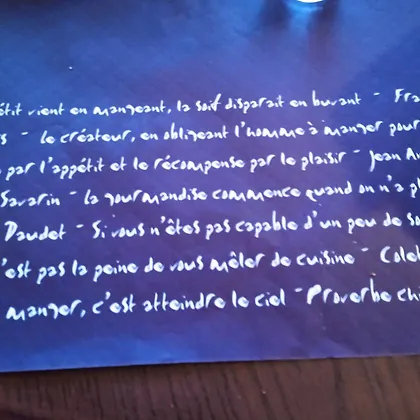 étit vient en mangeant, la soif disparait en buvant - Fra
s - le créateur, en obligeant l'homme à manger pour
par l'appétit et le récompense par le plaisir - Jean An
Savarin - la gourmandise commence quand on n'a pl
Daudet - Si vous n'êtes pas capable d'un peu de so
'est pas la peine de vous mêler de cuisine - Colet
manger, c'est atteindre le ciel - Proverbe chi